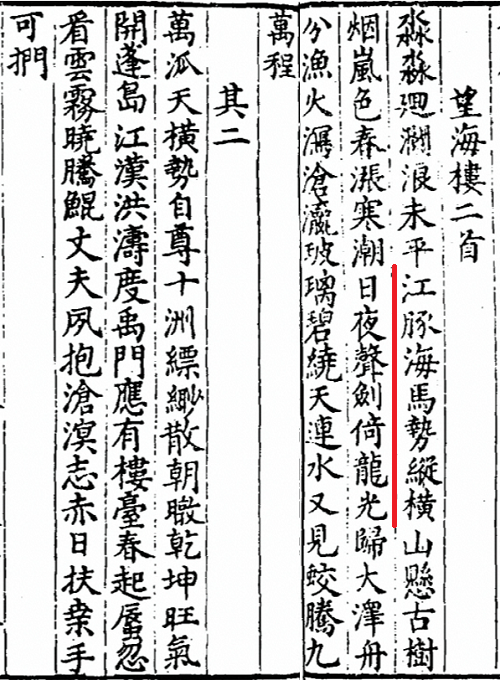 望海樓二首
淼淼迴瀾浪未平江豚海馬勢縱橫山懸古樹
烟嵐色春漲寒潮日夜聲劍倚龍光歸大澤舟
分漁火瀉滄瀛玻璃碧繞天連水又見蛟騰九
萬程
其二
萬泒天橫勢自尊十洲縹緲散朝暾乾坤旺氣
開蓬島江漢洪濤度禹門應有樓臺春起蜃忽
看雲霧曉騰鯤丈夫夙抱滄溟志赤日扶桒手
可捫